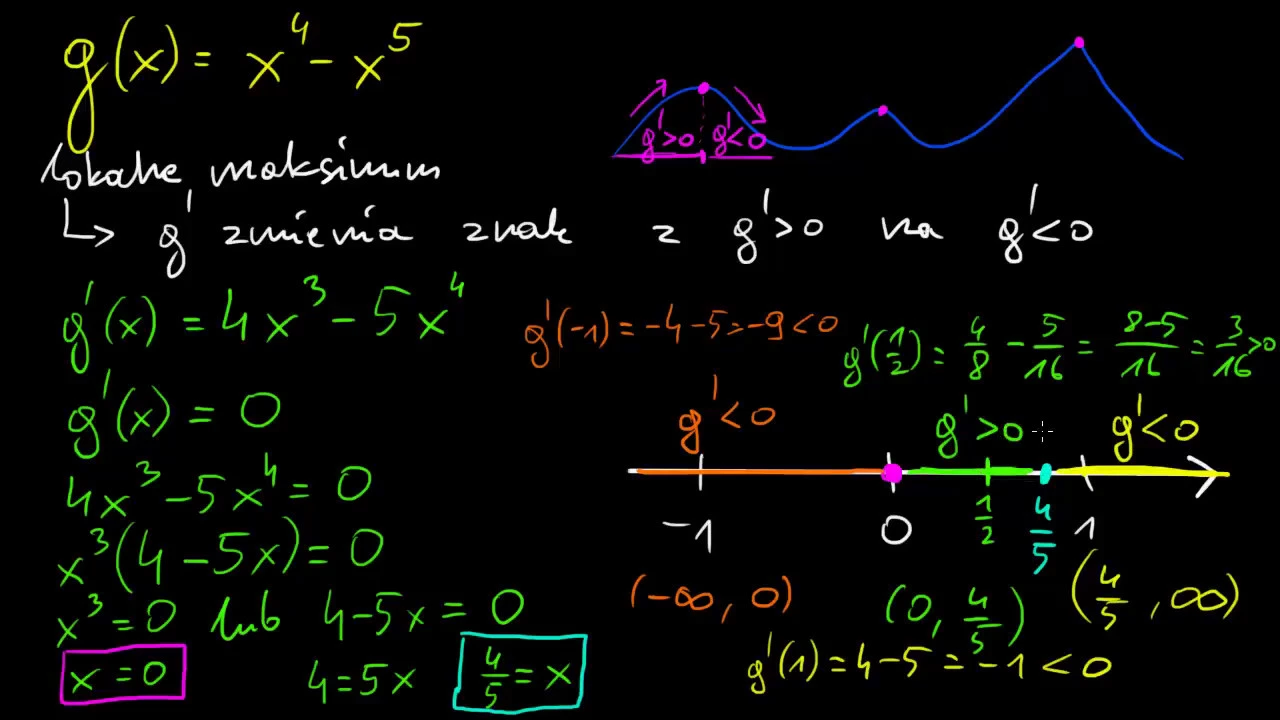 g(x) = x⁴ - x⁵
g'>0 g'<0
lokalne maksimum
↳ g' zmienia znak z g'>0 na g'<0
g'(x) = 4x³ - 5x⁴
g'(-1) = -4-5=-9<0
g'(1/2) = 4/8 - 5/16 = 8-5/16 = 3/16 >0
g'(x) = 0
g'<0 g'>0 g'<0
4x³ - 5x⁴ = 0
-1 0 1/2 4/5 1
x³(4-5x) = 0
(-∞, 0) (0, 4/5) (4/5, ∞)
x³ = 0 lub 4-5x = 0
g'(1) = 4-5 = -1 < 0
x = 0 4=5x 4/5 = x